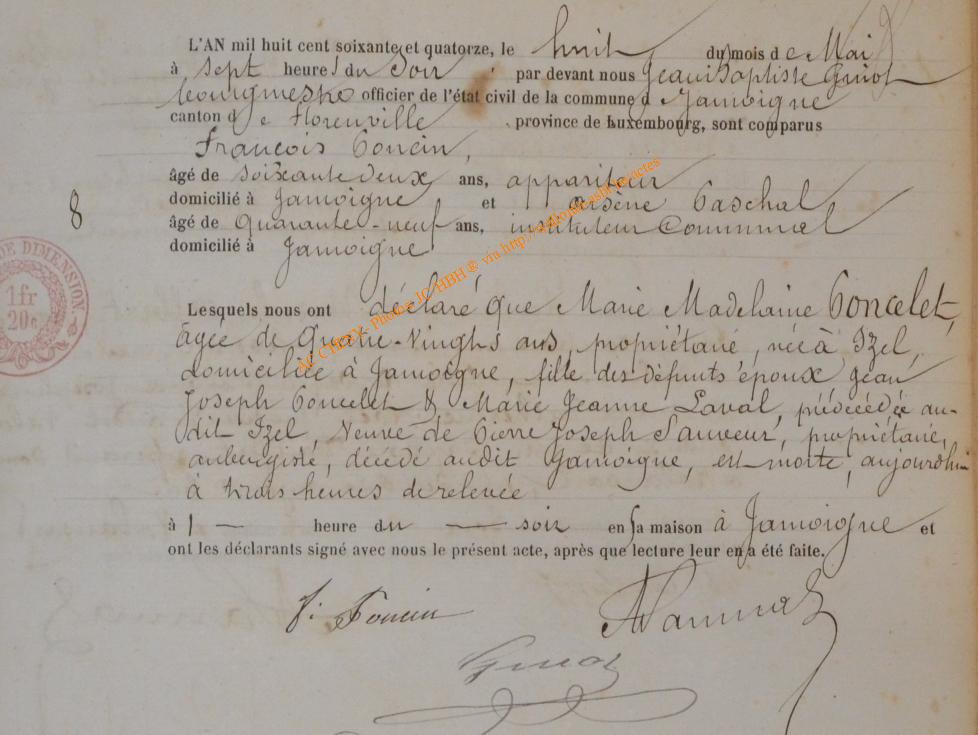 L'AN mil huit cent soixante et quatorze, le huit du mois de Mai
à sept heures du Soir par devant nous Jean Baptiste Guiot
bourgmestre officier de l'état civil de la commune d Jamoigne
canton de Florenville province de Luxembourg, sont comparus
François Poncin,
âgé de soixante deux ans, appariteur
domicilié à Jamoigne et Arsène Paschal
8
âgé de Quarante-neuf ans, instituteur Communal
domicilié à Jamoigne
DE DIMENSION.
1fr
20c
Lesquels nous ont déclaré que Marie Madelaine Poncelet,
âgée de Quatre-Vingts ans, propriétaire, née à Izel,
domiciliée à Jamoigne, fille des défunts époux Jean
Joseph Poncelet & Marie Jeanne Laval, prédécédés au-
dit Izel, Veuve de Pierre Joseph Sauveur, propriétaire,
aubergiste, décédé audit Jamoigne, est morte, aujourd'hui
à trois heures de relevée
à — heure du — soir en sa maison à Jamoigne et
ont les déclarants signé avec nous le présent acte, après que lecture leur en a été faite.
f. Poncin
Guiot